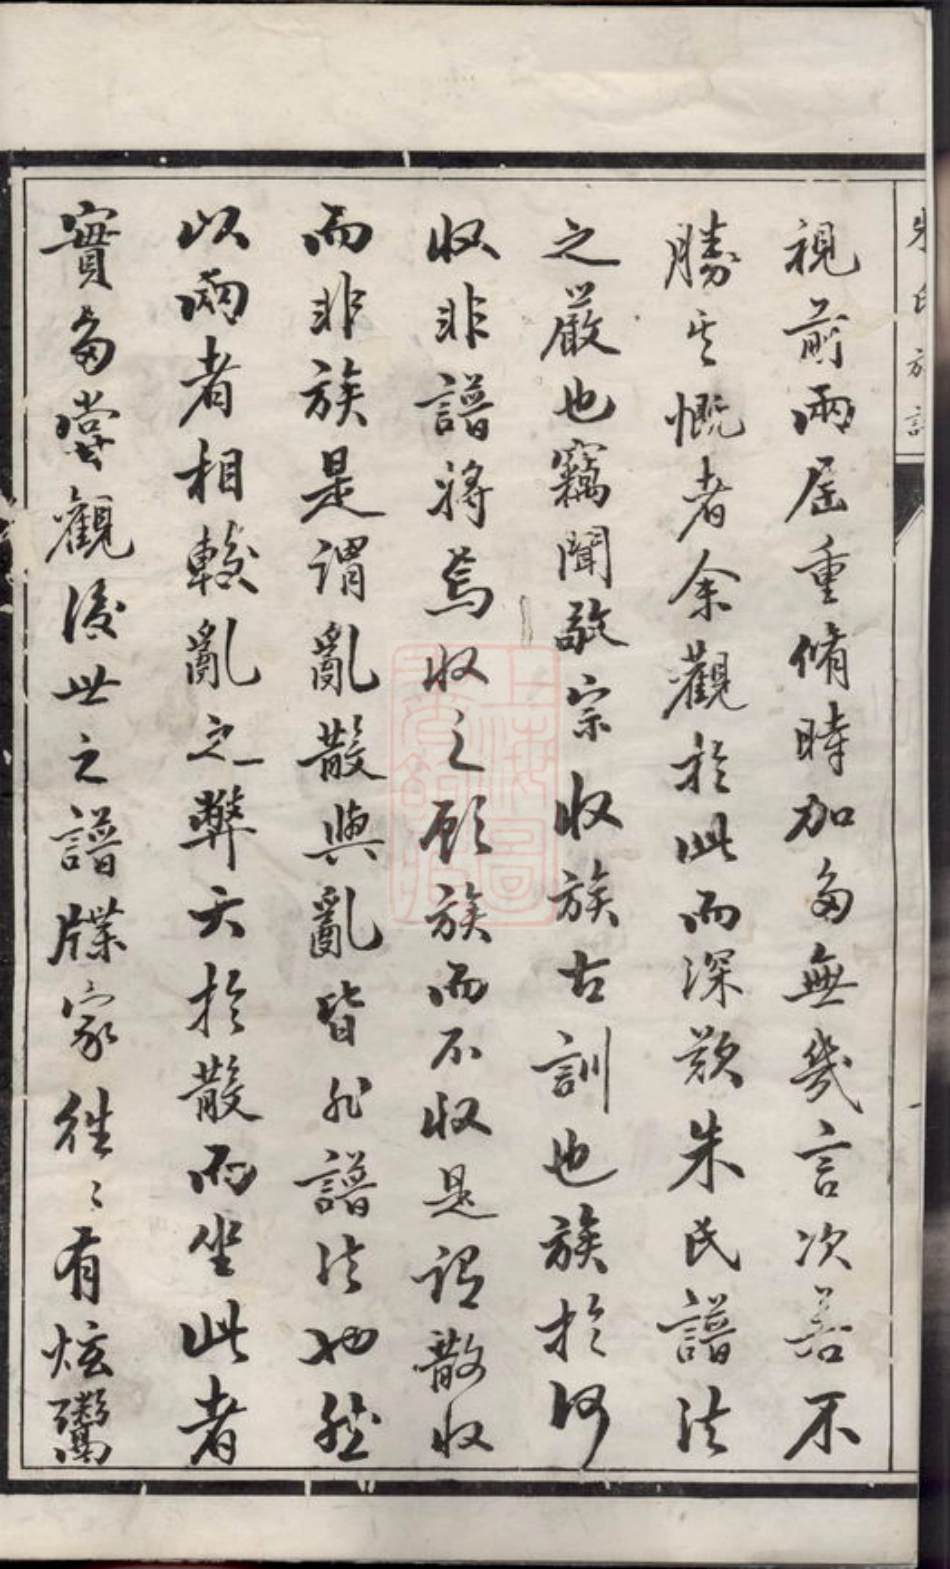 視前兩屆重脩時加多無幾言次若不
勝其慨者余觀於此而深歎朱氏譜法
之嚴也竊聞敬宗收族古訓也族於何
收非譜將焉收之顧族而不收是謂散收
而非族是謂亂散與亂皆非譜法也然
以兩者相較亂之弊大於散而坐此者
實多嘗觀後世之譜牒家往〻有炫鬻
朱氏族譜